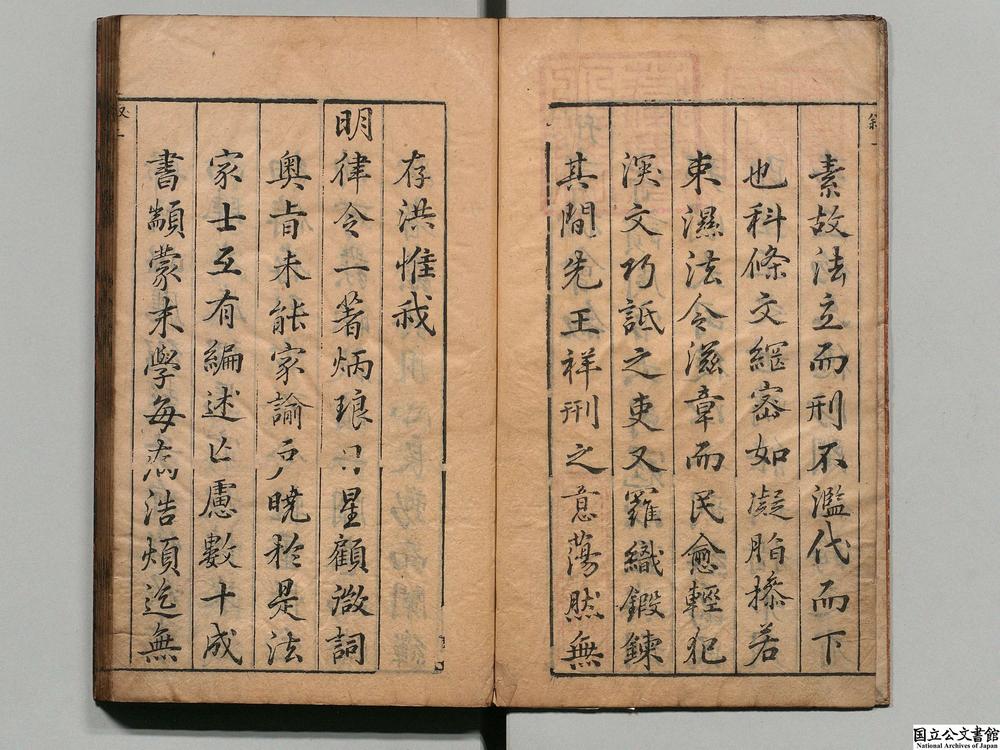 素故法立而刑不濫代而下
也科條文網密如凝脂摻若
束濕法令滋章而民愈輕犯
深文巧詆之吏又羅織鍛鍊
其間先王祥刑之意蕩然無
存洪惟我
明律令一著炳琅日星顧微詞
奧旨未能家諭戶曉於是法
家士互有編述亡慮數十成
書顓蒙末學每病浩煩迄無
国立公文書館
National Archives of Japan